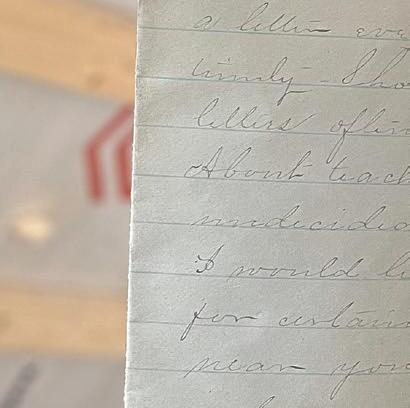 a letter eve
timely - I ho
letters often
About teach
undecided
I would li
for certain
near you